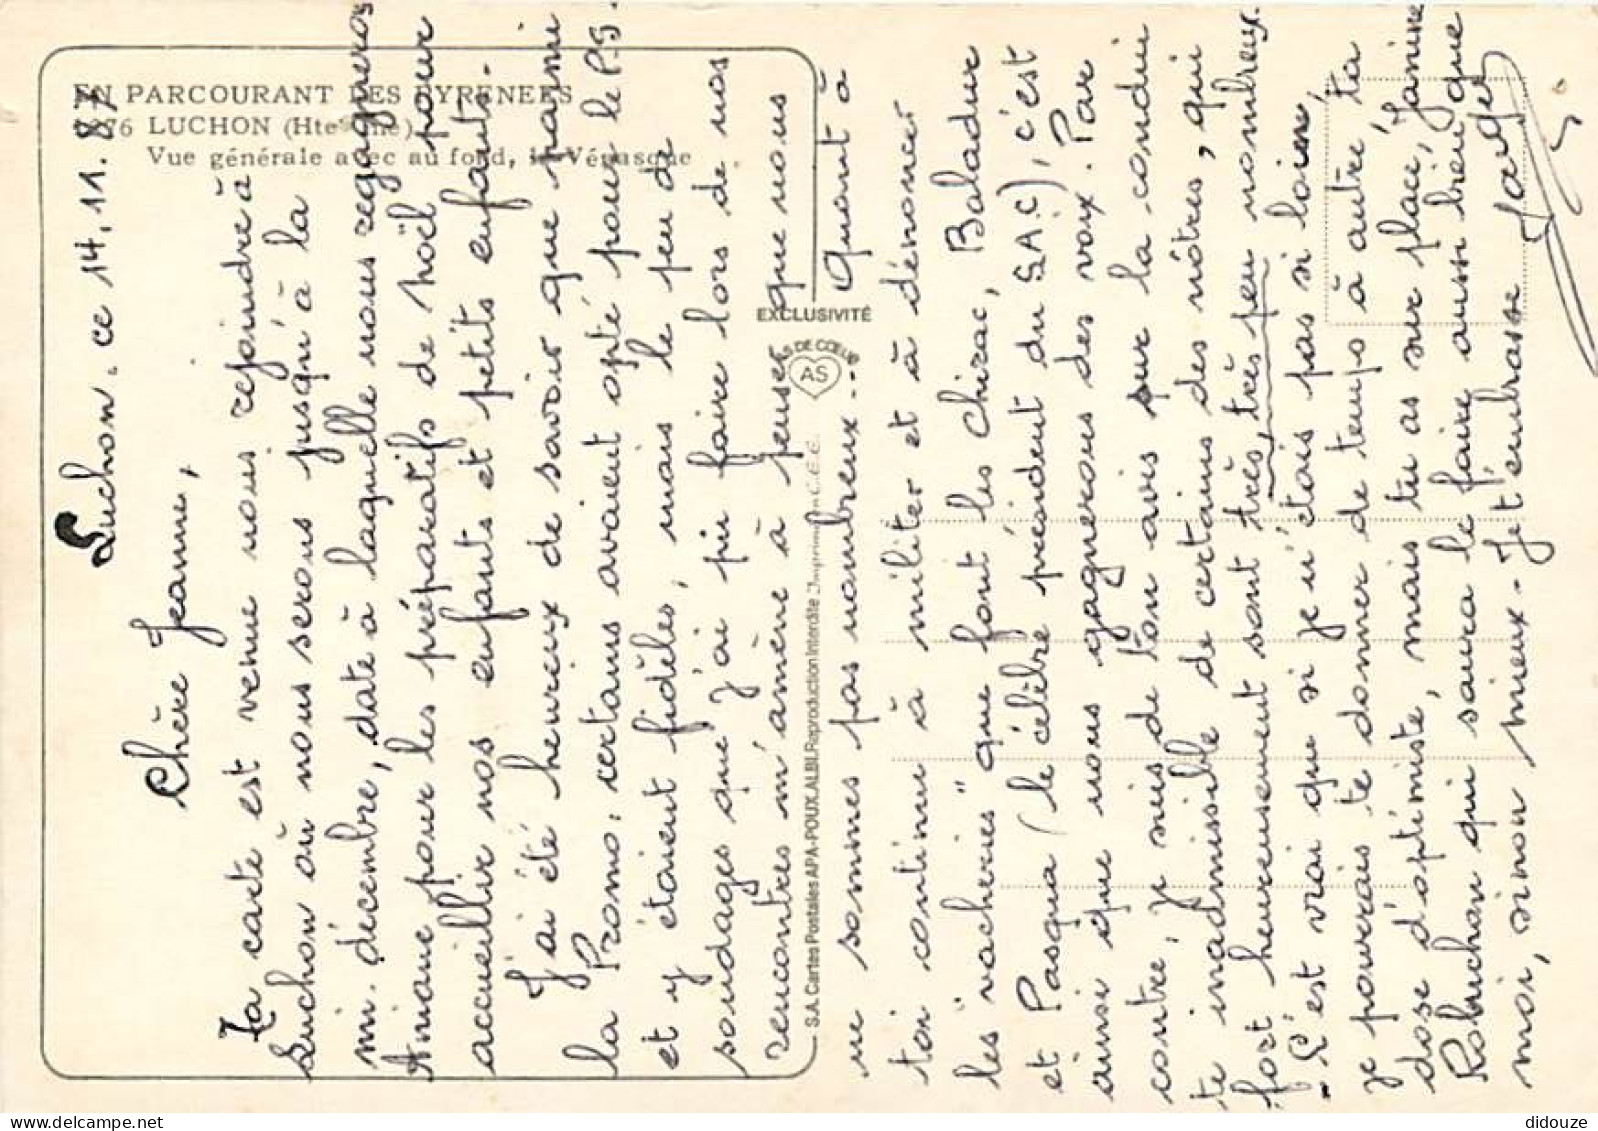 EN PARCOURANT LES PYRENEES
LUCHON (Hte
Vue générale avec au fond, le Vénasque
EXCLUSIVITÉ
AS DE COEUR
AS
S.A. Cartes Postales APA-POUX, ALBI. Reproduction Interdite Imprimé en C.E.E.
Luchon. ce 14.11.87
Chère Jeanne,
Ta carte est venue nous rejoindre à
Luchon où nous serons jusqu'à la
mi-décembre, date à laquelle nous regagnerons
Aniane pour les préparatifs de Noël pour
accueillir nos enfants et petits enfants.
J'ai été heureux de savoir que parmi
la Promo: certains avaient opté pour le P.S.
et y étaient fidèles, mais le peu de
sondages que j'ai pu faire lors de nos
rencontres m'amène à penser que nous
ne sommes pas nombreux... Quant à
toi continu à militer et à dénoncer
les "vacheries" que font les Chirac, Baladur
et Pasqua (le célèbre président du S.A.C), c'est
ainsi que nous gagnerons des voix. Par
contre, je suis de ton avis sur la condui
te inadmissible de certains des nôtres, qui
fort heureusement sont très, très peu nombreux.
- C'est vrai que si je n'étais pas si loin,
je pourrais te donner de temps à autre, ta
dose d'optimiste, mais tu as sur place, Janine
Robuchon qui saura le faire aussi bien que
moi, sinon mieux - Je t'embrasse
didouze